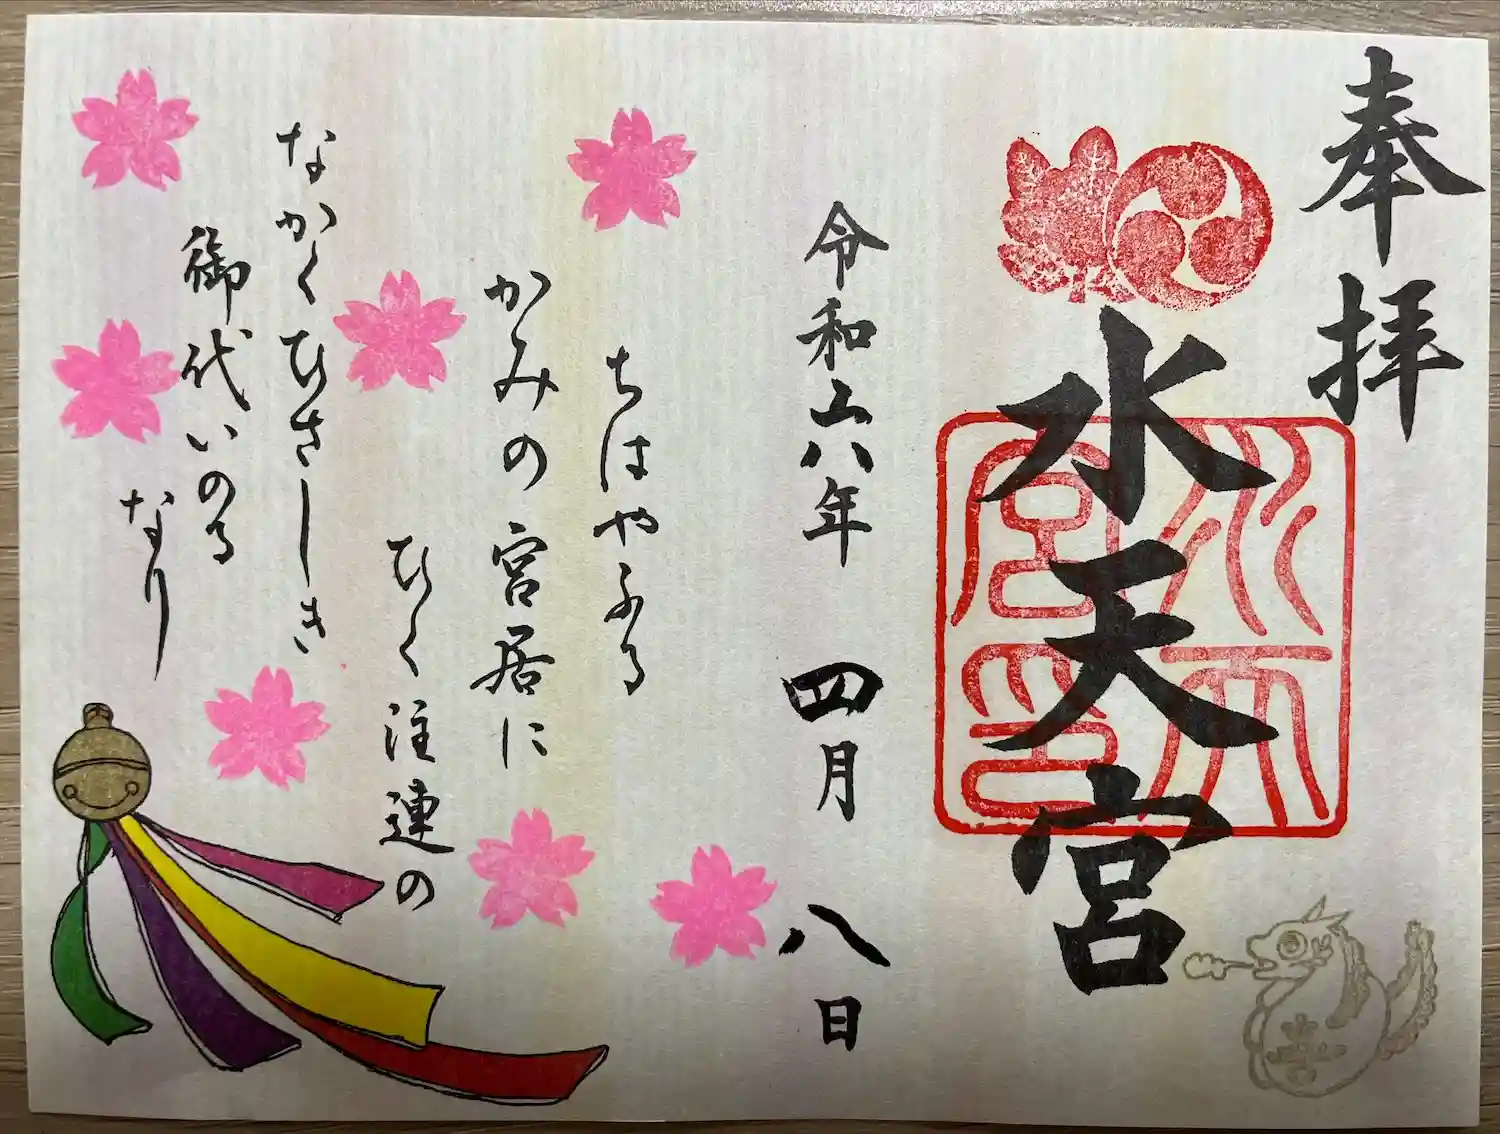 奉拝
水天宮
水天宮印
令和六年 四月 八日
ちはやふる
かみの宮居に
ひく注連の
なかくひさしき
御代いのる
なり